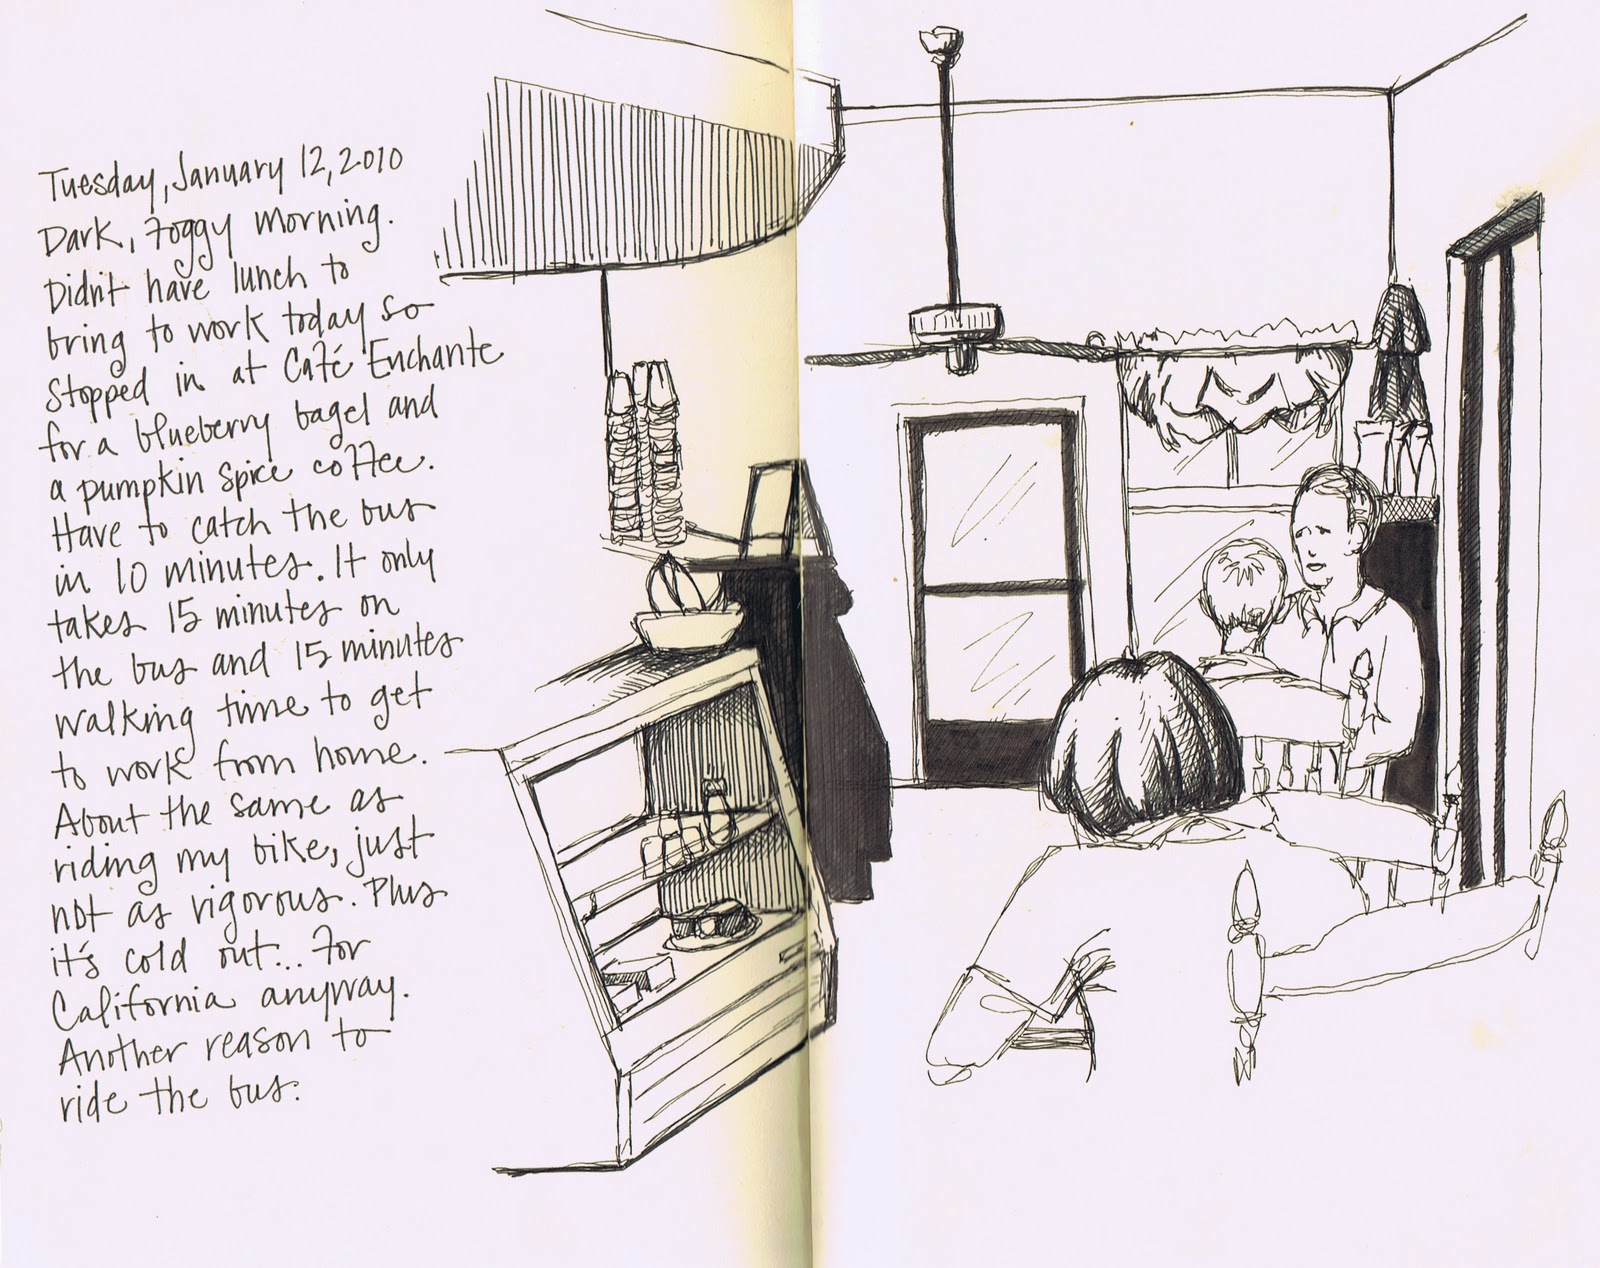 Tuesday, January 12, 2010
Dark, foggy morning.
Didn't have lunch to
bring to work today so
stopped in at Café Enchante
for a blueberry bagel and
a pumpkin spice coffee.
Have to catch the bus
in 10 minutes. It only
takes 15 minutes on
the bus and 15 minutes
walking time to get
to work from home.
About the same as
riding my bike, just
not as rigorous. Plus
it's cold out... for
California anyway.
Another reason to
ride the bus.